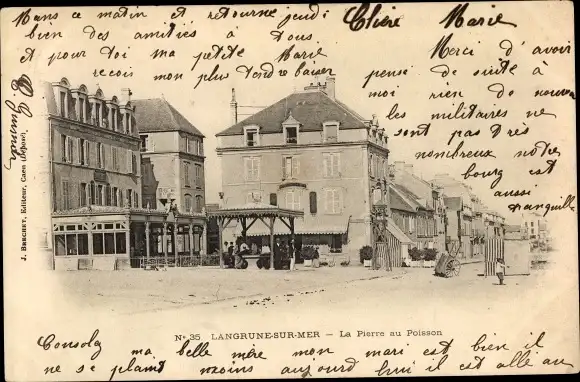 Mans ce matin et retourne jeudi
bien des amitiés à tous
et pour toi ma petite Marie
reçois mon plus tendre baiser
Chère Marie
Merci d'avoir
pensé de suite à
moi rien de nouveau
les militaires ne
sont pas très
nombreux notre
bourg est
aussi
tranquille
J. BRECHET, Editeur, Caen (Déposé)
No 35 LANGRUNE-SUR-MER — La Pierre au Poisson
ma belle mère mon mari est bien il
ne se plaint moins aujourd hui il est allé au